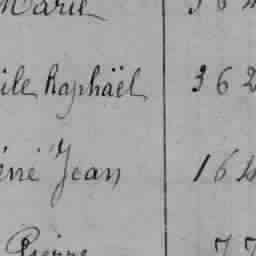 Marie
ile Raphaël 362
éné Jean 162
Pierre 77